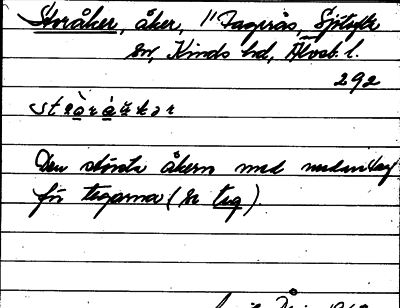 Storåker, åker, "Fagerås, Sjötofta
sn, Kinds hd, Älvsb. l.
292
Den största åkern med nedanlag
för tegarna (se teg).